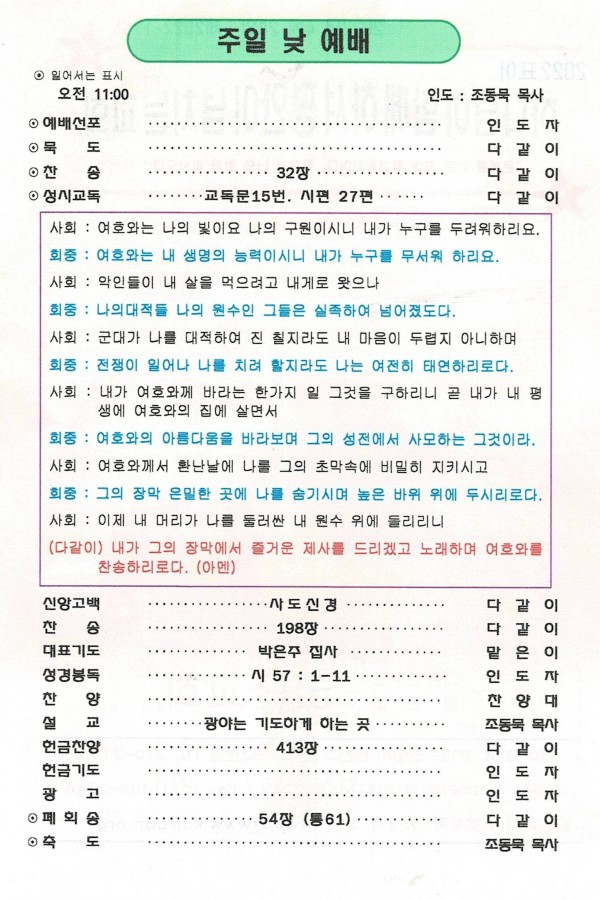 주일 낮 예배
⊙ 일어서는 표시
오전 11:00 인도 : 조동묵 목사
⊙ 예배선포 ································ 인 도 자
⊙ 묵 도 ································ 다 같 이
⊙ 찬 송 ················ 32장 ················ 다 같 이
⊙ 성시교독 ········ 교독문15번. 시편 27편 ·· ······ 다 같 이
사회 : 여호와는 나의 빛이요 나의 구원이시니 내가 누구를 두려워하리요.
회중 : 여호와는 내 생명의 능력이시니 내가 누구를 무서워 하리요.
사회 : 악인들이 내 살을 먹으려고 내게로 왓으나
회중 : 나의대적들 나의 원수인 그들은 실족하여 넘어졌도다.
사회 : 군대가 나를 대적하여 진 칠지라도 내 마음이 두렵지 아니하며
회중 : 전쟁이 일어나 나를 치려 할지라도 나는 여전히 태연하리로다.
사회 : 내가 여호와께 바라는 한가지 일 그것을 구하리니 곧 내가 내 평
생에 여호와의 집에 살면서
회중 : 여호와의 아름다움을 바라보며 그의 성전에서 사모하는 그것이라.
사회 : 여호와께서 환난날에 나를 그의 초막속에 비밀히 지키시고
회중 : 그의 장막 은밀한 곳에 나를 숨기시며 높은 바위 위에 두시리로다.
사회 : 이제 내 머리가 나를 둘러싼 내 원수 위에 들리리니
(다같이) 내가 그의 장막에서 즐거운 제사를 드리겠고 노래하며 여호와를
찬송하리로다. (아멘)
신앙고백 ················ 사도신경 ·············· 다 같 이
찬 송 ················ 198장 ················ 다 같 이
대표기도 ·············· 박은주 집사 ·············· 맡 은 이
성경봉독 ·············· 시 57 : 1-11 ·············· 인 도 자
찬 양 ································ 찬 양 대
설 교 ········ 광야는 기도하게 하는 곳 ·········· 조동묵 목사
헌금찬양 ················ 413장 ················ 다 같 이
헌금기도 ································ 인 도 자
광 고 ································ 인 도 자
⊙ 폐 회 송 ·············· 54장 (통61) ············ 다 같 이
⊙ 축 도 ································ 조동묵 목사